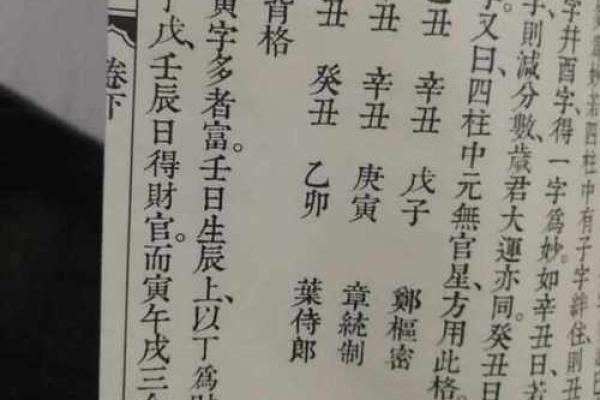 妙若四柱中有子字絆住、則丑
字幷酉字、得一字爲妙。如辛丑日、若
則減分數、歲君大運亦同。癸丑日
又曰、四柱中元無官星、方用此格。
丑 辛丑 戊子 鄭樞密
丑 辛丑 庚寅 章統制
丑 癸丑 乙卯 葉侍郎
背格
寅字多者富。壬日生辰上、以丁爲財
戊、壬辰日得財官。而寅午戌三
卷下